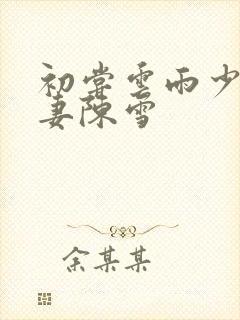 初尝雲雨少
妻陳雪
余某某